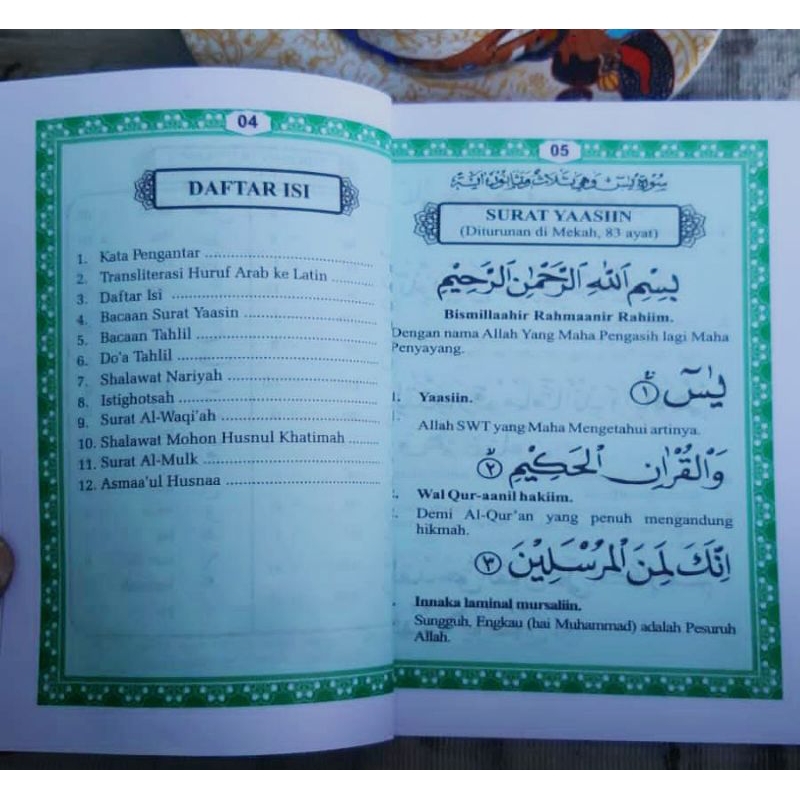 04
DAFTAR ISI
1. Kata Pengantar
2. Transliterasi Huruf Arab ke Latin
3. Daftar Isi
4. Bacaan Surat Yaasin
5. Bacaan Tahlil
6. Do'a Tahlil
7. Shalawat Nariyah
8. Istighotsah
9. Surat Al-Waqi'ah
10. Shalawat Mohon Husnul Khatimah
11. Surat Al-Mulk
12. Asmaa'ul Husnaa
05
سورة يس وهي ثلاث وثمانون اية
SURAT YAASIIN
(Diturunan di Mekah, 83 ayat)
بِسْمِ اللّٰهِ الرَّحْمٰنِ الرَّحِيْمِ
Bismillaahir Rahmaanir Rahiim.
Dengan nama Allah Yang Maha Pengasih lagi Maha
Penyayang.
يٰسۤ ۚ ﴿١﴾
1. Yaasiin.
Allah SWT yang Maha Mengetahui artinya.
وَالْقُرْاٰنِ الْحَكِيْمِ ۙ ﴿٢﴾
Wal Qur-aanil hakiim.
Demi Al-Qur'an yang penuh mengandung
hikmah.
اِنَّكَ لَمِنَ الْمُرْسَلِيْنَ ﴿٣﴾
Innaka laminal mursaliin.
Sungguh, Engkau (hai Muhammad) adalah Pesuruh
Allah.